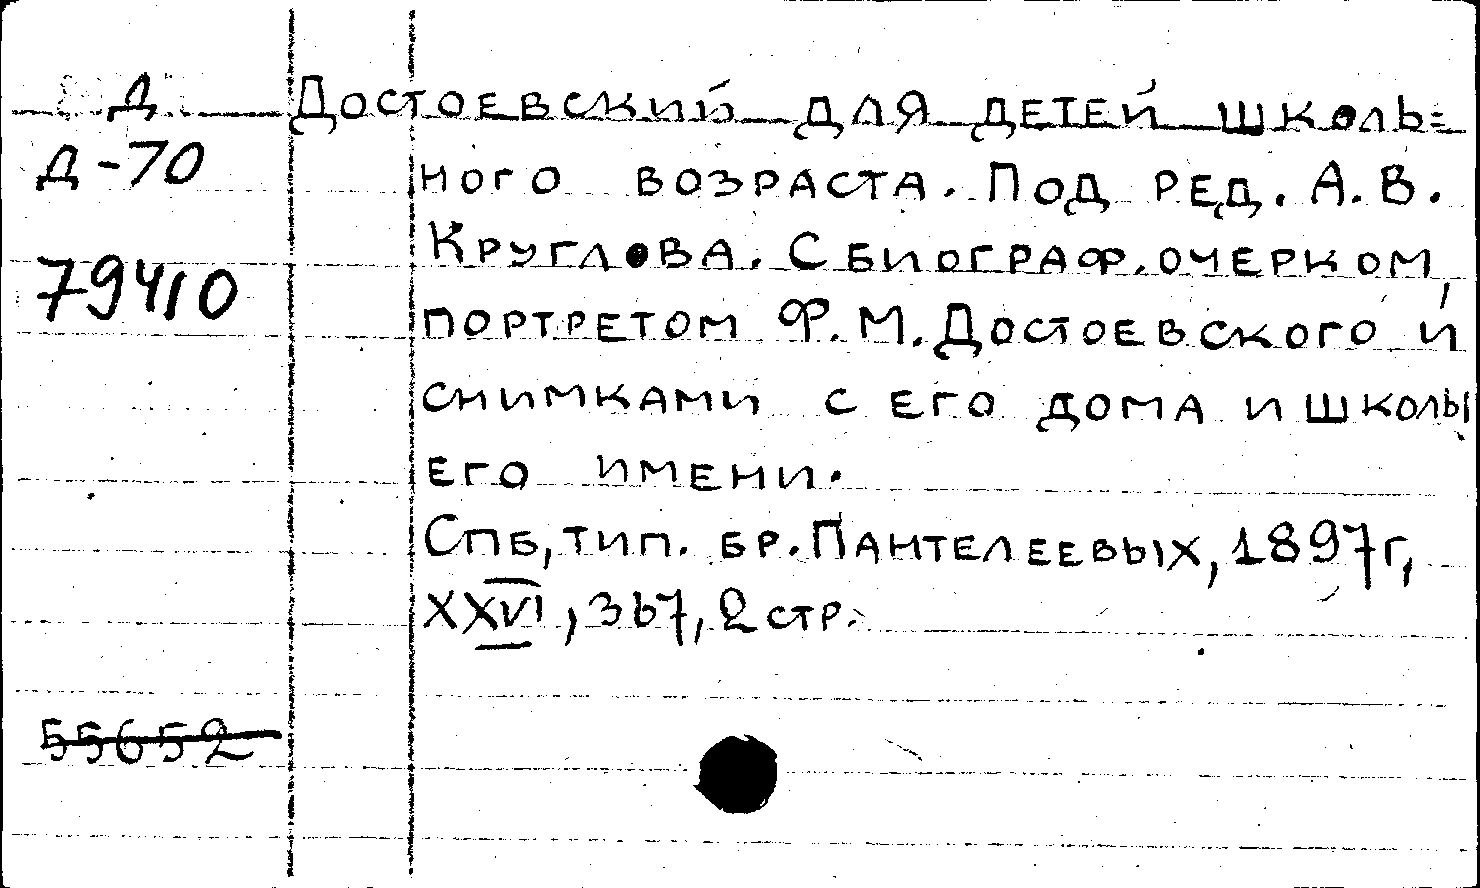 Д
Д-70
79410
Достоевский для детей школь=
ного возраста. Под ред. А.В.
Круглова. С биограф. очерком,
портретом Ф.М. Достоевского и
снимками с его дома и школы
его имени.
Спб, тип. бр. Пантелеевых, 1897г,
XXVI, 367, 2 стр.
55652